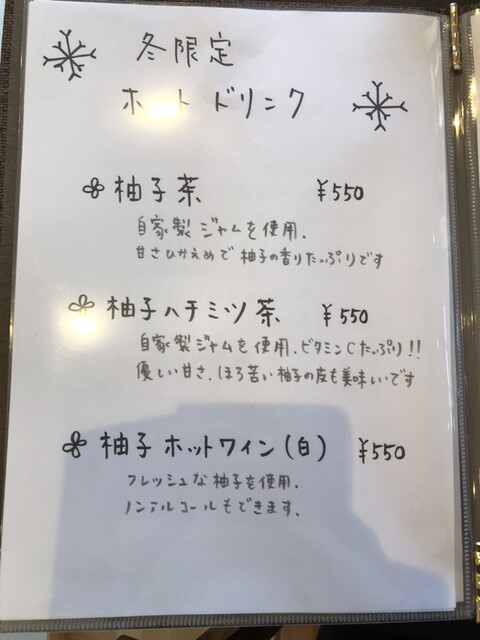 冬限定
ホットドリンク
柚子茶 ¥550
自家製ジャムを使用.
甘さひかえめで柚子の香りたっぷりです
柚子ハチミツ茶 ¥550
自家製ジャムを使用、ビタミンCたっぷり!!
優しい甘さ、ほろ苦い柚子の皮も美味しいです
柚子ホットワイン(白) ¥550
フレッシュな柚子を使用.
ノンアルコールもできます.